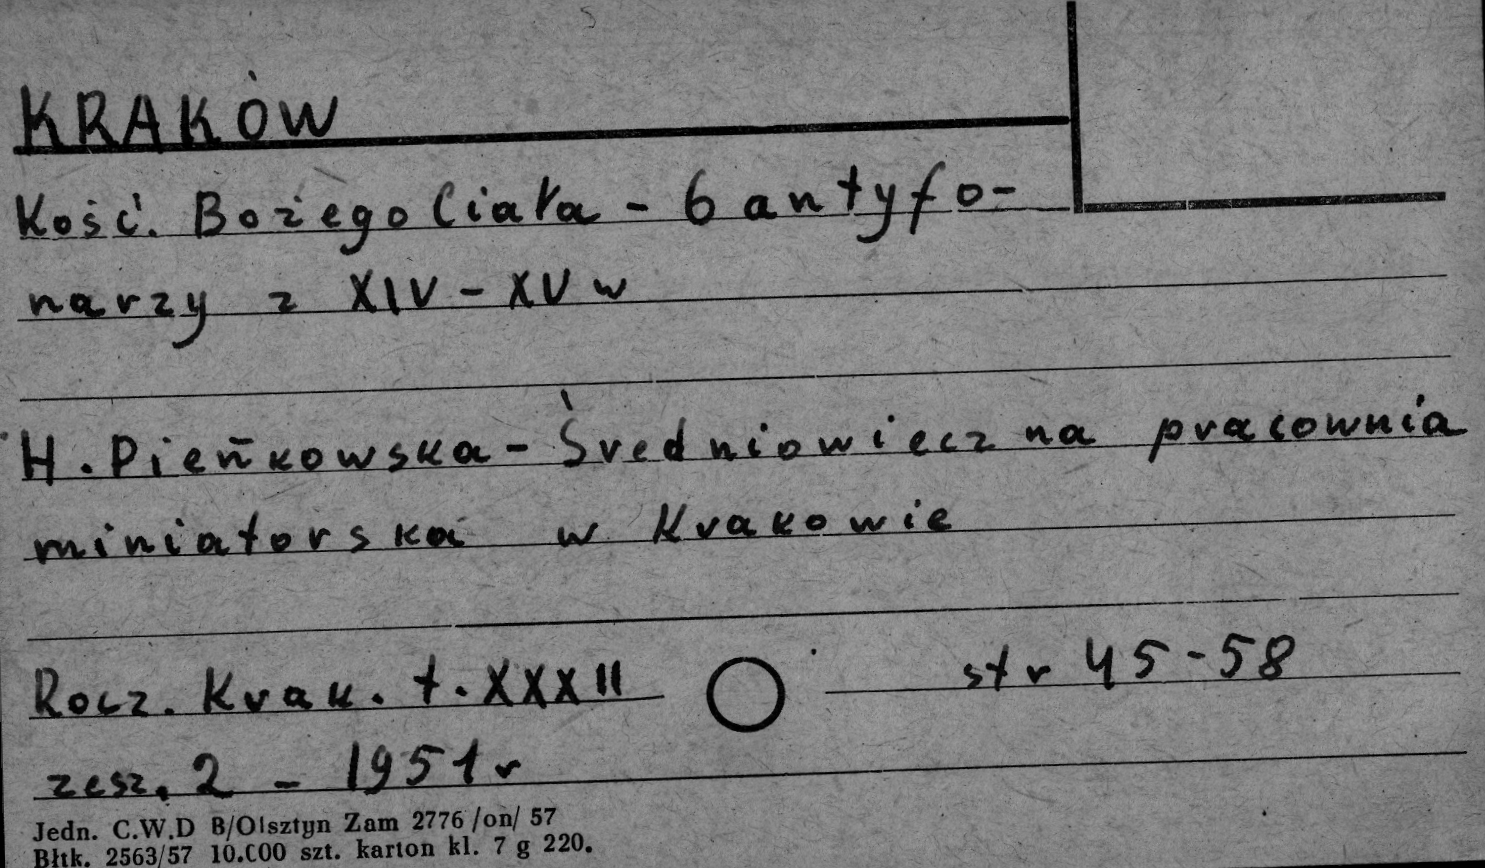 KRAKÓW
Kość. Bożego Ciała - 6 antyfo-
narzy z XIV - XV w
H. Pieńkowska - Średniowieczna pracownia
miniatorska w Krakowie
Rocz. Krak. t. XXXII str 45-58
zesz. 2 - 1951 r
Jedn. C.W.D B/Olsztyn Zam 2776 /on/ 57
Błtk. 2563/57 10.000 szt. karton kl. 7 g 220.